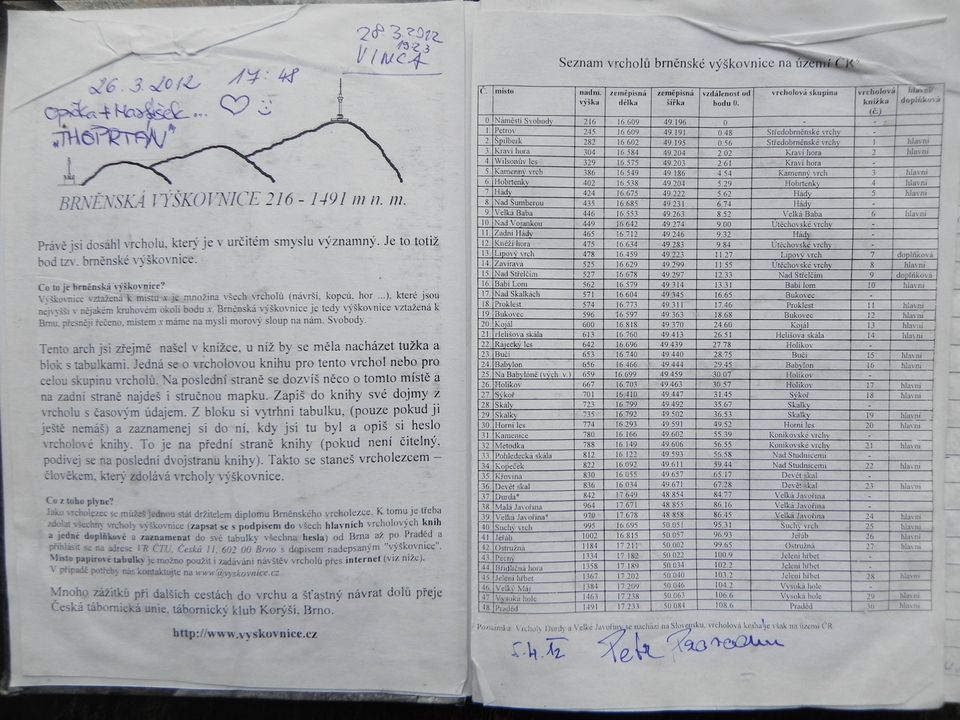 28 3.2012
1923
VINCA
26. 3. 2012 17:48
"THORTAN"
BRNĚNSKÁ VÝŠKOVNICE 216 - 1491 m n. m.
Právě jsi dosáhl vrcholu, který je v určitém smyslu významný. Je to totiž
bod tzv. brněnské výškovnice.
Co to je brněnská výškovnice?
Výškovnice vztažená k místu x je množina všech vrcholů (návrší, kopců, hor ...), které jsou
nejvyšší v nějakém kruhovém okolí bodu x. Brněnská výškovnice je tedy výškovnice vztažená k
Brnu, přesněji řečeno, místem x máme na mysli morový sloup na nám. Svobody.
Tento arch jsi zřejmě našel v knížce, u níž by se měla nacházet tužka a
blok s tabulkami. Jedná se o vrcholovou knihu pro tento vrchol nebo pro
celou skupinu vrcholů. Na poslední straně se dozvíš něco o tomto místě a
na zadní straně najdeš i stručnou mapku. Zapiš do knihy své dojmy z
vrcholu s časovým údajem. Z bloku si vytrhni tabulku, (pouze pokud ji
ještě nemáš) a zaznamenej si do ní, kdy jsi tu byl a opiš si heslo
vrcholové knihy. To je na přední straně knihy (pokud není čitelný,
podívej se na poslední dvojstranu knihy). Takto se staneš vrcholezcem –
člověkem, který zdolává vrcholy výškovnice.
Co z toho plyne?
Jako vrcholezec se můžeš jednou stát držitelem diplomu Brněnského vrcholezce. K tomu je třeba
zdolat všechny vrcholy výškovnice (zapsat se s podpisem do všech hlavních vrcholových knih
a jedné doplňkové a zaznamenat do své tabulky všechna hesla) od Brna až po Praděd a
přihlásit se na adrese VR ČTU, Česká 11, 602 00 Brno s dopisem nadepsaným "výškovnice".
Místo papírové tabulky je možno použít i zadávání návštěv vrcholů přes internet (viz níže).
V případě potřeby nás kontaktujte na www@vyskovnice.cz
Mnoho zážitků při dalších cestách do vrchu a šťastný návrat dolů přeje
Česká tábornická unie, tábornický klub Korýši, Brno.
http://www.vyskovnice.cz
Seznam vrcholů brněnské výškovnice na území ČR*
Č. místo nadm. výška zeměpisná délka zeměpisná šířka vzdálenost od bodu 0. vrcholová skupina vrcholová knížka (č.) hlavní/ doplňková
0. Náměstí Svobody 216 16.609 49.196 0 - -
1. Petrov 245 16.609 49.191 0.48 Středobrněnské vrchy -
2. Špilberk 282 16.602 49.195 0.56 Středobrněnské vrchy 1 hlavní
3. Kraví hora 304 16.584 49.204 2.02 Kraví hora 2 hlavní
4. Wilsonův les 329 16.575 49.203 2.61 Kraví hora -
5. Kamenný vrch 386 16.549 49.186 4.54 Kamenný vrch 3 hlavní
6. Hobrtenky 402 16.538 49.204 5.29 Hobrtenky 4 hlavní
7. Hády 424 16.675 49.222 5.62 Hády 5 hlavní
8. Nad Šumberou 435 16.685 49.231 6.74 Hády -
9. Velká Baba 446 16.553 49.263 8.52 Velká Baba 6 hlavní
10. Nad Vojankou 449 16.642 49.274 9.00 Útěchovské vrchy -
11. Zadní Hády 465 16.712 49.246 9.32 Hády -
12. Kněží hora 475 16.634 49.283 9.84 Útěchovské vrchy -
13. Lipový vrch 478 16.459 49.223 11.27 Lipový vrch 7 doplňková
14. Zavíravá 525 16.629 49.299 11.55 Útěchovské vrchy 8 hlavní
15. Nad Střelčím 527 16.678 49.297 12.33 Nad Střelčím 9 doplňková
16. Babí lom 562 16.579 49.314 13.31 Babí lom 10 hlavní
17. Nad Skalkami 571 16.604 49.345 16.65 Bukovec -
18. Proklest 574 16.773 49.311 17.46 Proklest 11 hlavní
19. Bukovec 596 16.597 49.363 18.68 Bukovec 12 hlavní
20. Kojál 600 16.818 49.370 24.60 Kojál 13 hlavní
21. Helišova skála 613 16.760 49.413 26.51 Helišova skála 14 hlavní
22. Rájecký les 642 16.696 49.439 27.78 Holíkov -
23. Bučí 653 16.740 49.440 28.75 Bučí 15 hlavní
24. Babylon 656 16.466 49.444 29.45 Babylon 16 hlavní
25. Na Babyloně (vých v.) 659 16.699 49.459 30.07 Holíkov -
26. Holíkov 667 16.703 49.463 30.57 Holíkov 17 hlavní
27. Sýkoř 701 16.410 49.447 31.45 Sýkoř 18 hlavní
28. Skály 723 16.799 49.492 35.67 Skalky -
29. Skalky 735 16.792 49.502 36.53 Skalky 19 hlavní
30. Horní les 774 16.293 49.591 49.52 Horní les 20 hlavní
31. Kamenice 780 16.166 49.602 55.39 Konikovské vrchy -
32. Metodka 788 16.149 49.606 56.55 Konikovské vrchy 21 hlavní
33. Pohledecká skála 812 16.122 49.593 56.58 Nad Studnicemi -
34. Kopeček 822 16.092 49.611 59.44 Nad Studnicemi 22 hlavní
35. Křovina 830 16.055 49.657 65.17 Devět skal -
36. Devět skal 836 16.034 49.671 67.28 Devět skal 23 hlavní
37. Durda* 842 17.649 48.854 84.77 Velká Javořina -
38. Malá Javořina 964 17.671 48.858 86.16 Velká Javořina -
39. Velká Javořina* 970 17.678 48.858 86.45 Velká Javořina 24 hlavní
40. Suchý vrch 995 16.695 50.051 95.31 Suchý vrch 25 hlavní
41. Jeřáb 1002 16.815 50.057 96.93 Jeřáb 26 hlavní
42. Ostružná 1184 17.211 50.002 99.65 Ostružná 27 hlavní
43. Pecný 1334 17.182 50.022 100.9 Jelení hřbet -
44. Břidličná hora 1358 17.189 50.034 102.2 Jelení hřbet -
45. Jelení hřbet 1367 17.202 50.040 103.2 Jelení hřbet 28 hlavní
46. Velký Máj 1384 17.209 50.046 104.2 Vysoká hole -
47. Vysoká hole 1463 17.238 50.063 106.6 Vysoká hole 29 hlavní
48. Praděd 1491 17.233 50.084 108.6 Praděd 30 hlavní
* Poznámka: Vrcholy Durdy a Velké Javořiny se nachází na Slovensku, vrcholová kniha je však na území ČR.
5.4.12 Petr